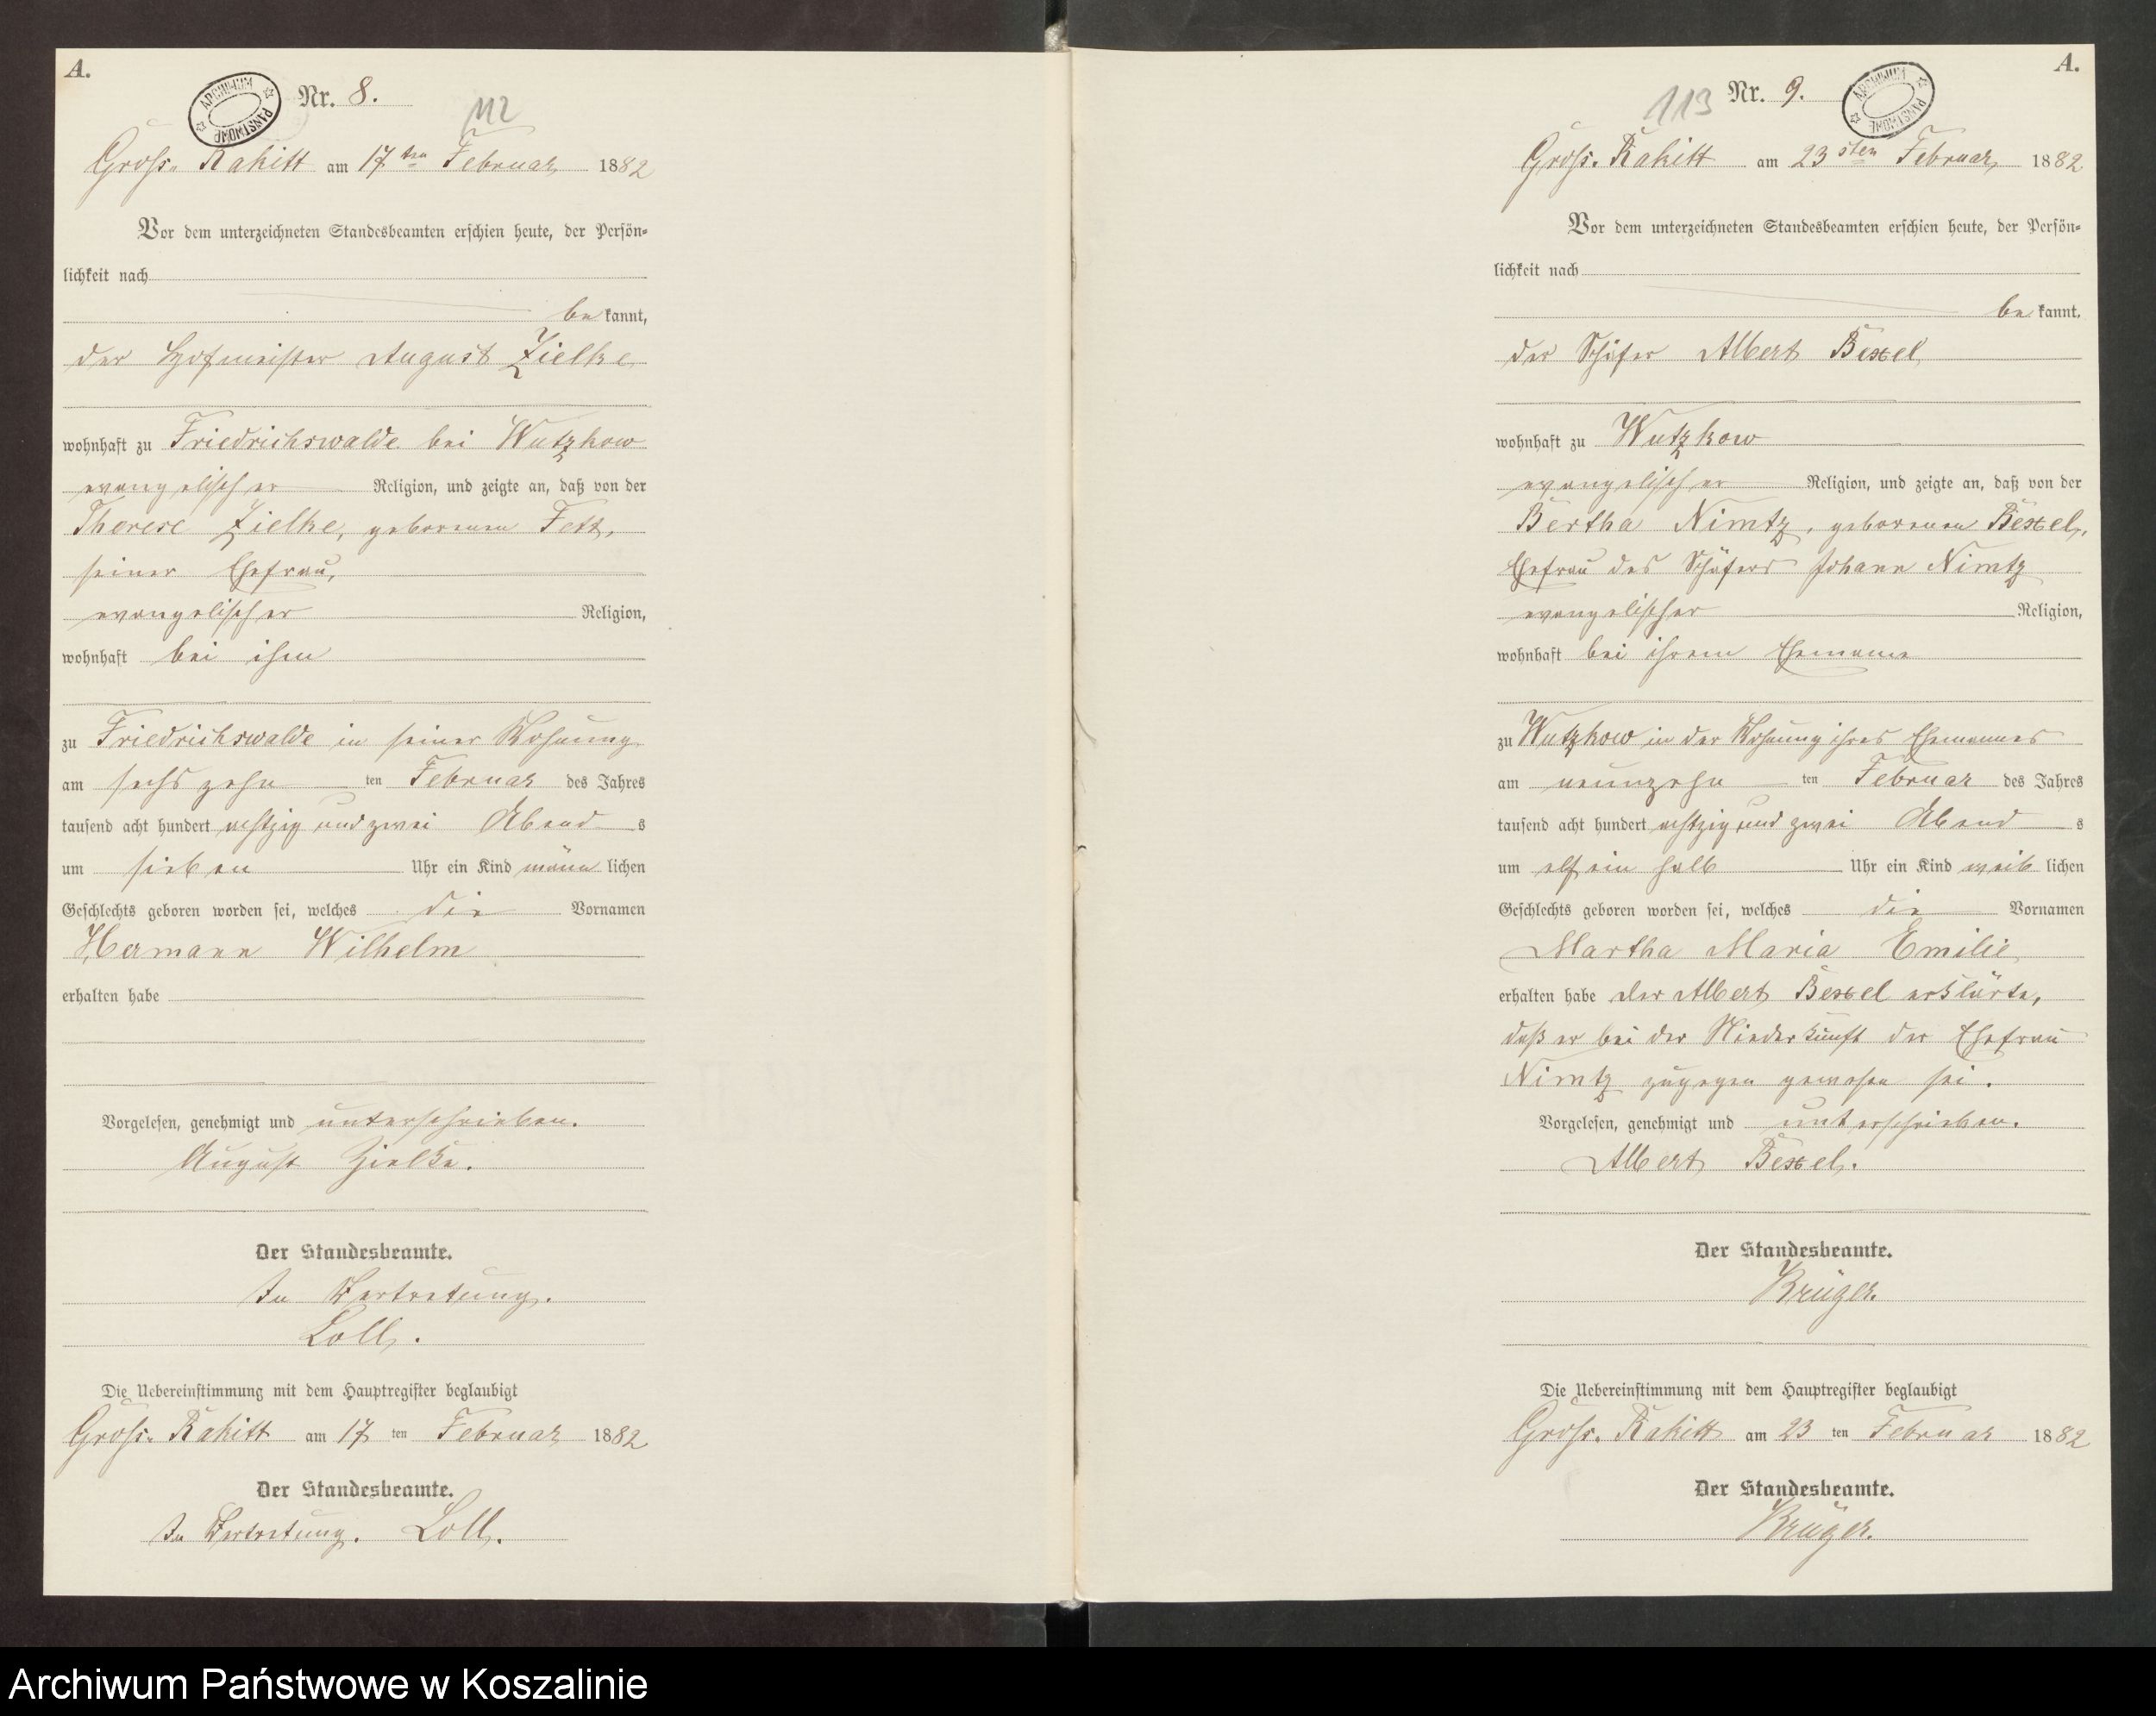 A.
Nr. 8.
ARCHIWUM PAŃSTWOWE
112
Gross. Rakitt am 17ten Februar 1882
Vor dem unterzeichneten Standesbeamten erschien heute, der Persön-
lichkeit nach
be kannt,
der Hofmeister August Zielke
wohnhaft zu Friedrichswalde bei Wutzkow
evangelischer Religion, und zeigte an, daß von der
Therese Zielke, geborenen Fett,
seiner Ehefrau,
evangelischer Religion,
wohnhaft bei ihm
zu Friedrichswalde in seiner Wohnung
am sechszehn ten Februar des Jahres
tausend acht hundert achtzig und zwei Abend s
um sieben Uhr ein Kind männ lichen
Geschlechts geboren worden sei, welches die Vornamen
Hermann Wilhelm
erhalten habe
Vorgelesen, genehmigt und unterschrieben.
August Zielke.
Der Standesbeamte.
In Vertretung.
Loll.
Die Uebereinstimmung mit dem Hauptregister beglaubigt
Gross. Rakitt am 17 ten Februar 1882
Der Standesbeamte.
In Vertretung. Loll.
A.
113 Nr. 9.
ARCHIWUM PAŃSTWOWE
Gross. Rakitt am 23sten Februar 1882
Vor dem unterzeichneten Standesbeamten erschien heute, der Persön-
lichkeit nach
be kannt.
der Schäfer Albert Bexel
wohnhaft zu Wutzkow
evangelischer Religion, und zeigte an, daß von der
Bertha Nimtz, geborenen Bexel,
Ehefrau des Schäfers Johann Nimtz
evangelischer Religion,
wohnhaft bei ihrem Ehemanne
zu Wutzkow in der Wohnung ihres Ehemannes
am neunzehn ten Februar des Jahres
tausend acht hundert achtzig und zwei Abend s
um elf ein halb Uhr ein Kind weib lichen
Geschlechts geboren worden sei, welches die Vornamen
Martha Maria Emilie
erhalten habe der Albert Bexel erklärte,
daß er bei der Niederkunft der Ehefrau
Nimtz zugegen gewesen sei.
Vorgelesen, genehmigt und unterschrieben.
Albert Bexel.
Der Standesbeamte.
Krüger.
Die Uebereinstimmung mit dem Hauptregister beglaubigt
Gross. Rakitt am 23 ten Februar 1882
Der Standesbeamte.
Krüger.
Archiwum Państwowe w Koszalinie